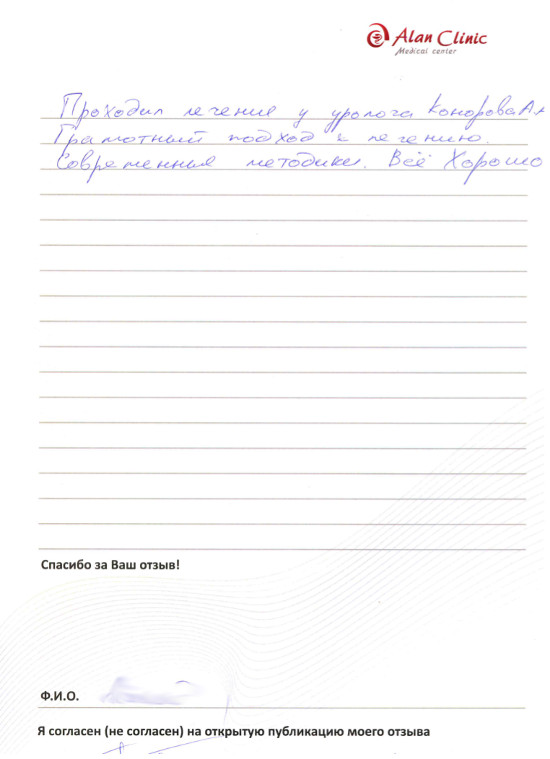 Alan Clinic
Medical center
Проходил лечение у уролога Конорова А.
Грамотный подход к лечению.
Современные методики. Всё Хорошо
Спасибо за Ваш отзыв!
Ф.И.О.
Я согласен (не согласен) на открытую публикацию моего отзыва